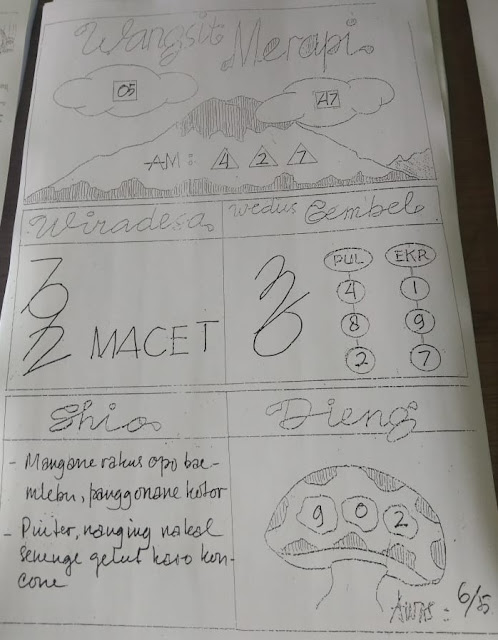 Wangsit Merapi
05
47
AM: 4 2 7
Wiradesa
Wedus Gembel
MACET
PUL EKR
4 1
8 9
2 7
Shio
Dieng
- Mangane rakus opo bae
mlebu, panggonane kotor
- Pinter, nanging nakal
senenge gelut karo kon-
cone
9 0 2
AWAS: 6/5